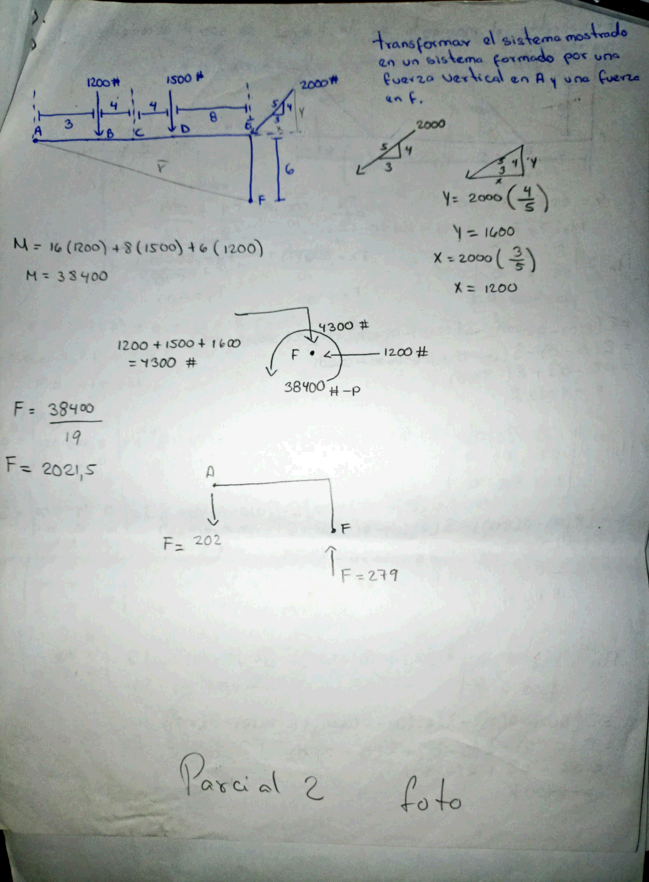 transformar el sistema mostrado
en un sistema formado por una
fuerza vertical en A y una fuerza
en F.
1200 # 1500 # 2000 #
3 4 4 8 5 4 3 Y
A B C D E 3
F 6
F
2000
5 4
3
5 4 Y
3
X
Y = 2000 (4/5)
Y = 1600
X = 2000 (3/5)
X = 1200
M = 16 (1200) + 8 (1500) + 6 (1200)
M = 38400
1200 + 1500 + 1600
= 4300 #
4300 #
F 1200 #
38400 #-P
F = 38400
19
F = 2021,5
A
F
F = 202
F = 279
Parcial 2 foto